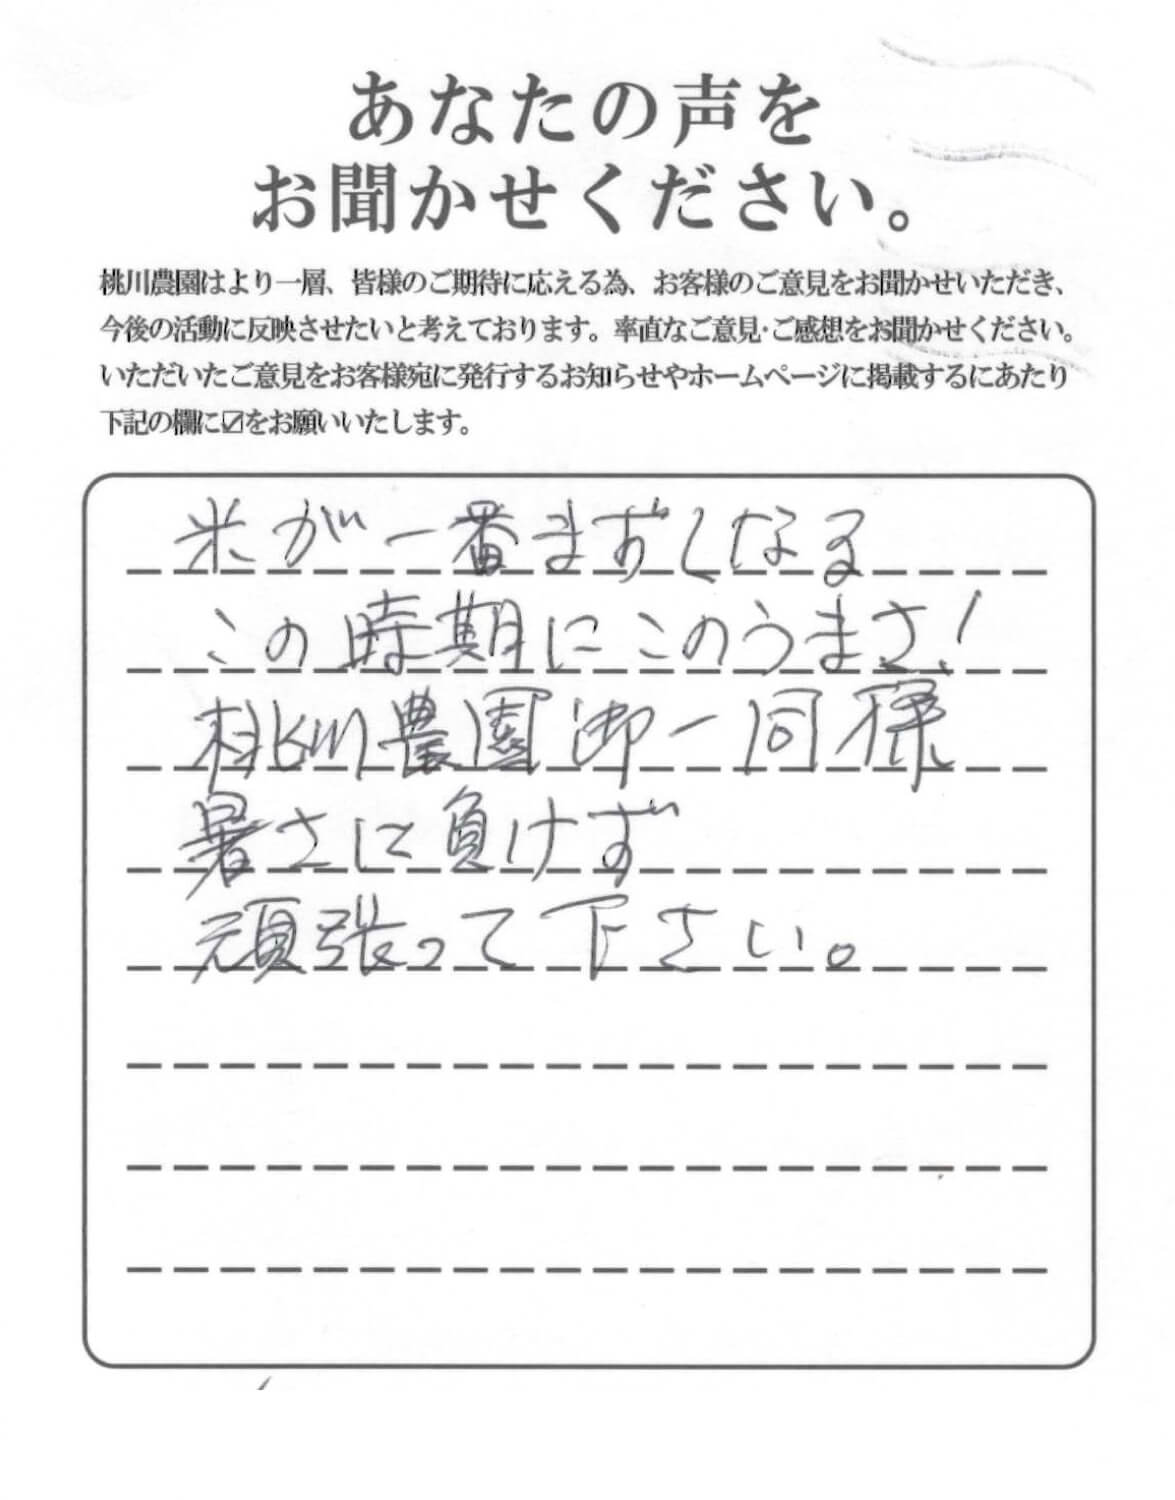 あなたの声を
お聞かせください。
桃川農園はより一層、皆様のご期待に応える為、お客様のご意見をお聞かせいただき、
今後の活動に反映させたいと考えております。率直なご意見・ご感想をお聞かせください。
いただいたご意見をお客様宛に発行するお知らせやホームページに掲載するにあたり
下記の欄に☑をお願いいたします。
米が一番まずしなる
この時期にこのうまさ!
桃川農園御一同様
暑さに負けず
頑張って下さい。